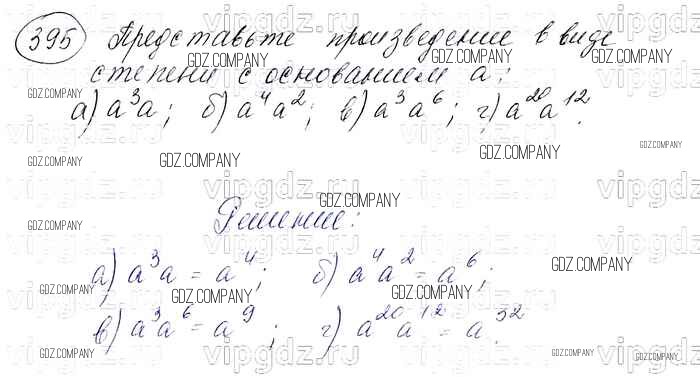 395 Представьте произведение в виде
степени с основанием a:
а) a³a; б) a⁴a²; в) a³a⁶; г) a²⁰a¹².
Решение:
а) a³a = a⁴; б) a⁴a² = a⁶;
в) a³a⁶ = a⁹; г) a²⁰a¹² = a³².
vipgdz.ru
GDZ.COMPANY